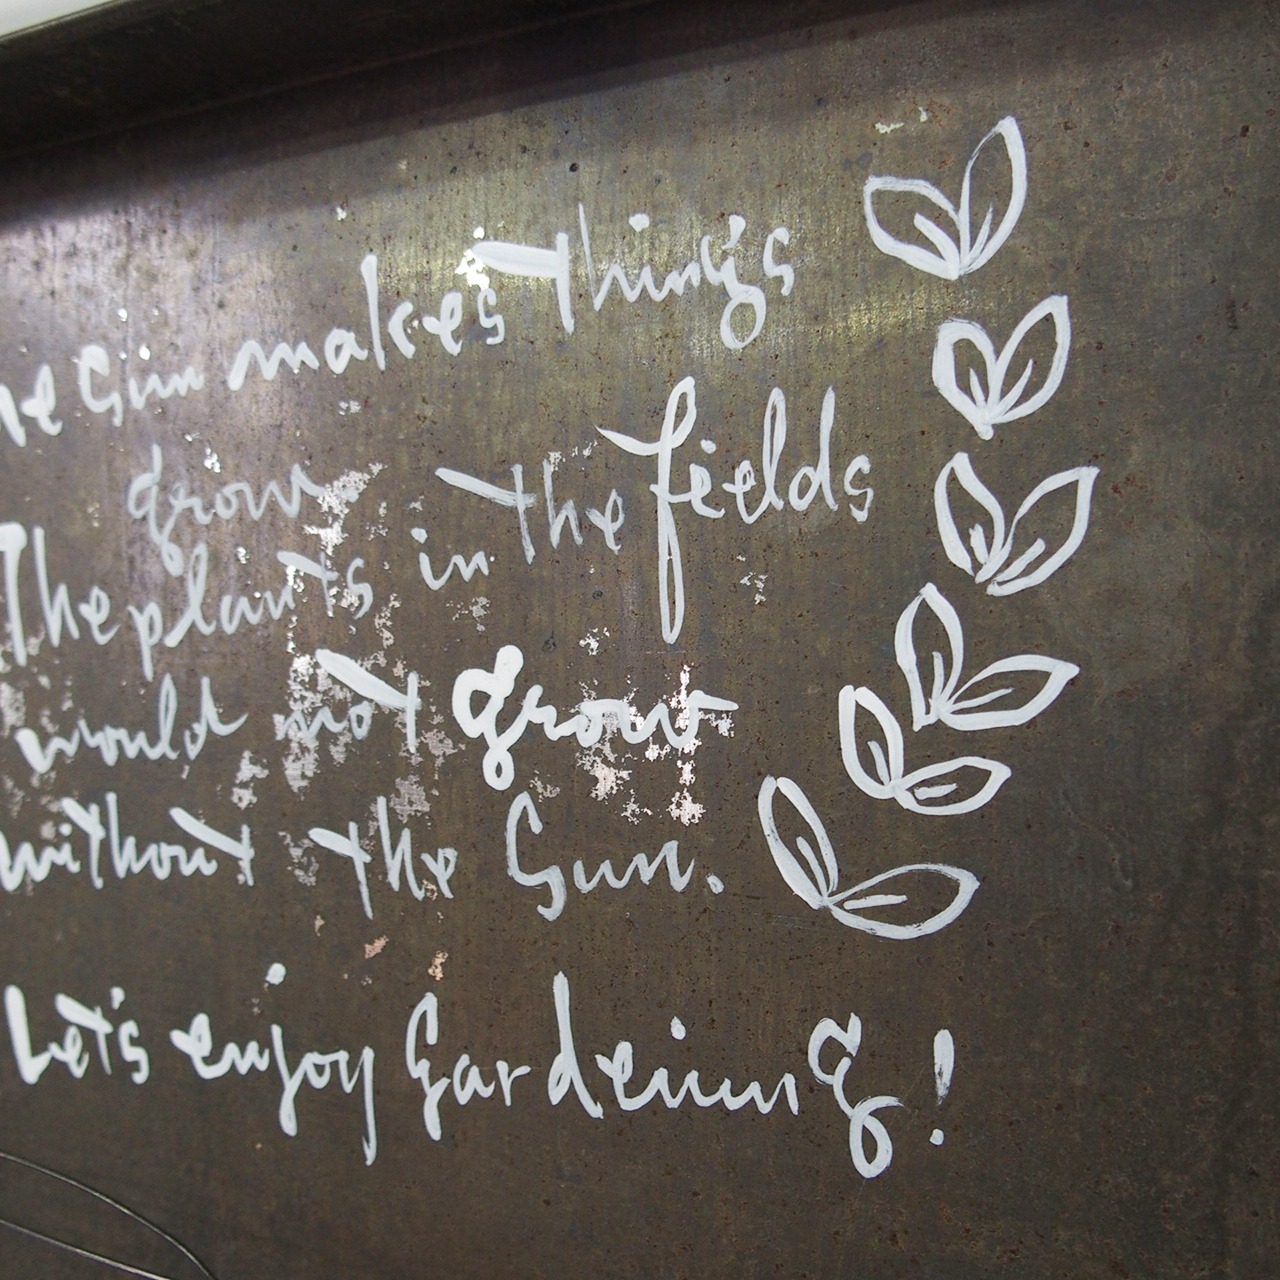 he Sun makes things
grow
The plants in the fields
would not grow
without the Sun.
Let's enjoy Gardening!